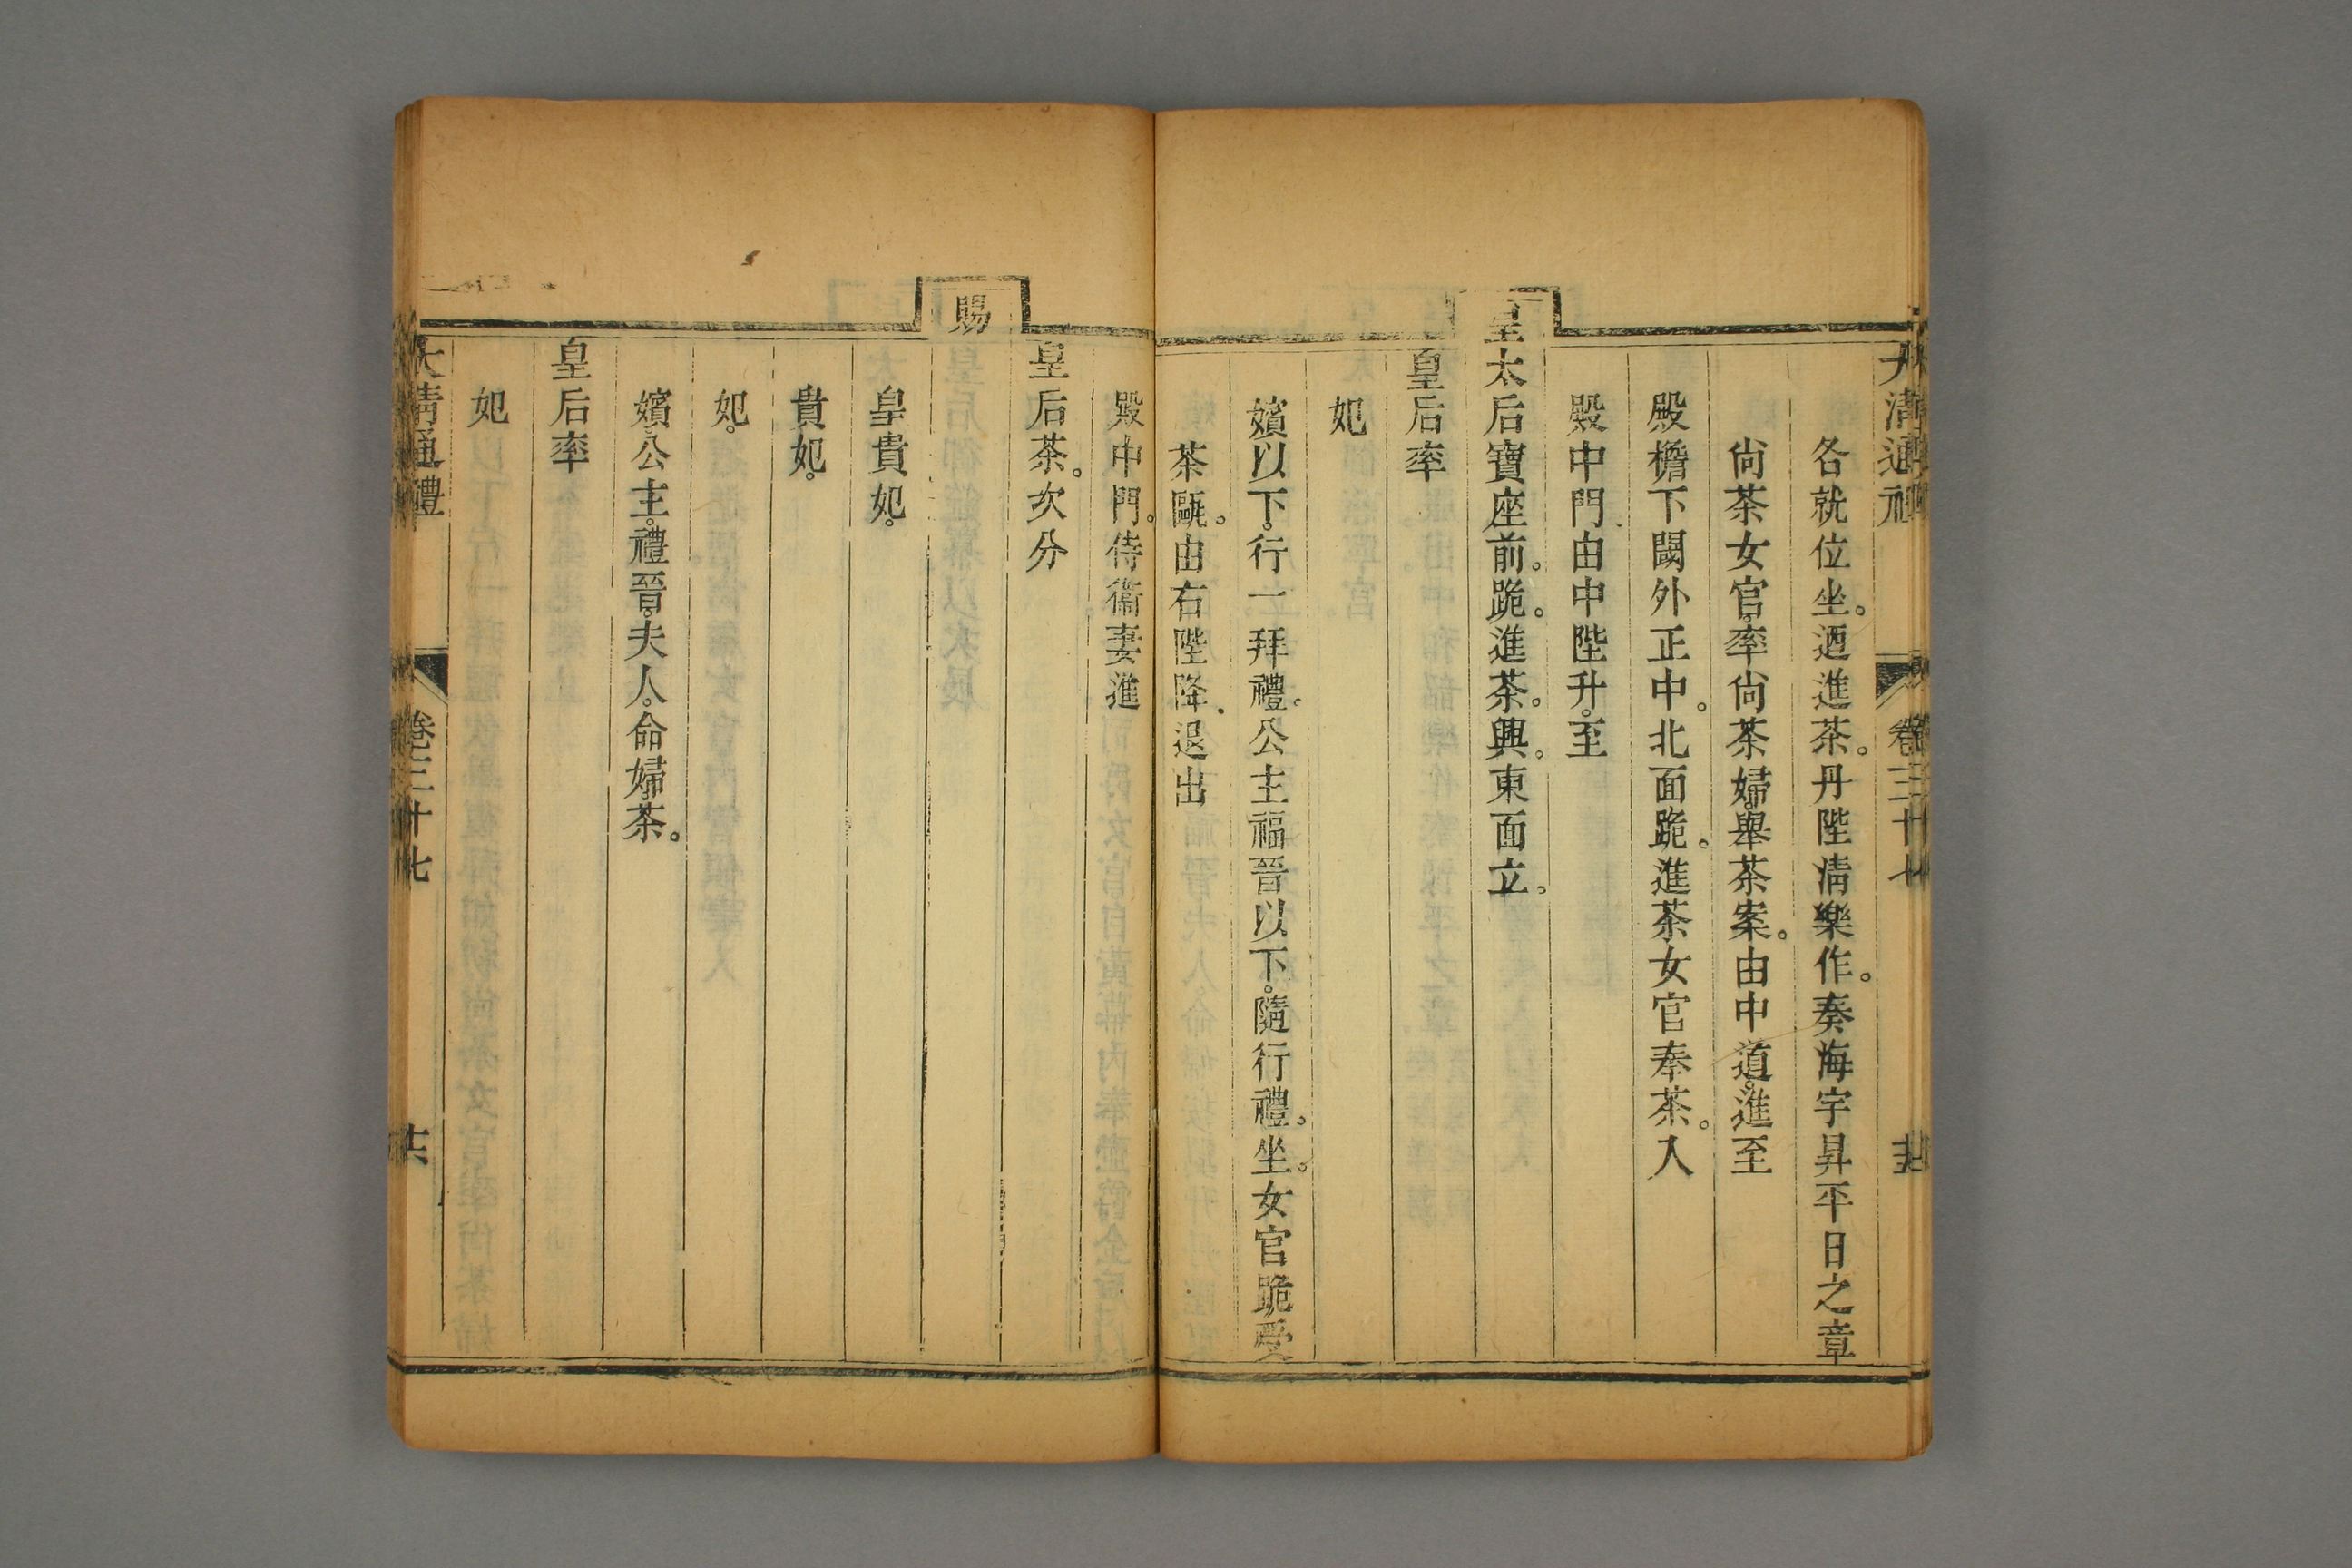 大清通禮 卷三十七
各就位坐。迺進茶。丹陛淸樂作。奏海宇昇平日之章
尙茶女官。率尙茶婦。舉茶案。由中道。進至
殿檐下閾外正中。北面跪。進茶女官奉茶。入
殿中門。由中陛升。至
皇太后寶座前。跪。進茶。興。東面立。
皇后率
妃
嬪以下。行一拜禮。公主福晉以下。隨行禮。坐。女官跪受
茶甌。由右陛降。退出
殿中門。侍衞妻進
皇后茶。次分
賜
皇貴妃。
貴妃。
妃。
嬪。公主。福晉。夫人。命婦。茶。
皇后率
妃
大清通禮 卷三十七